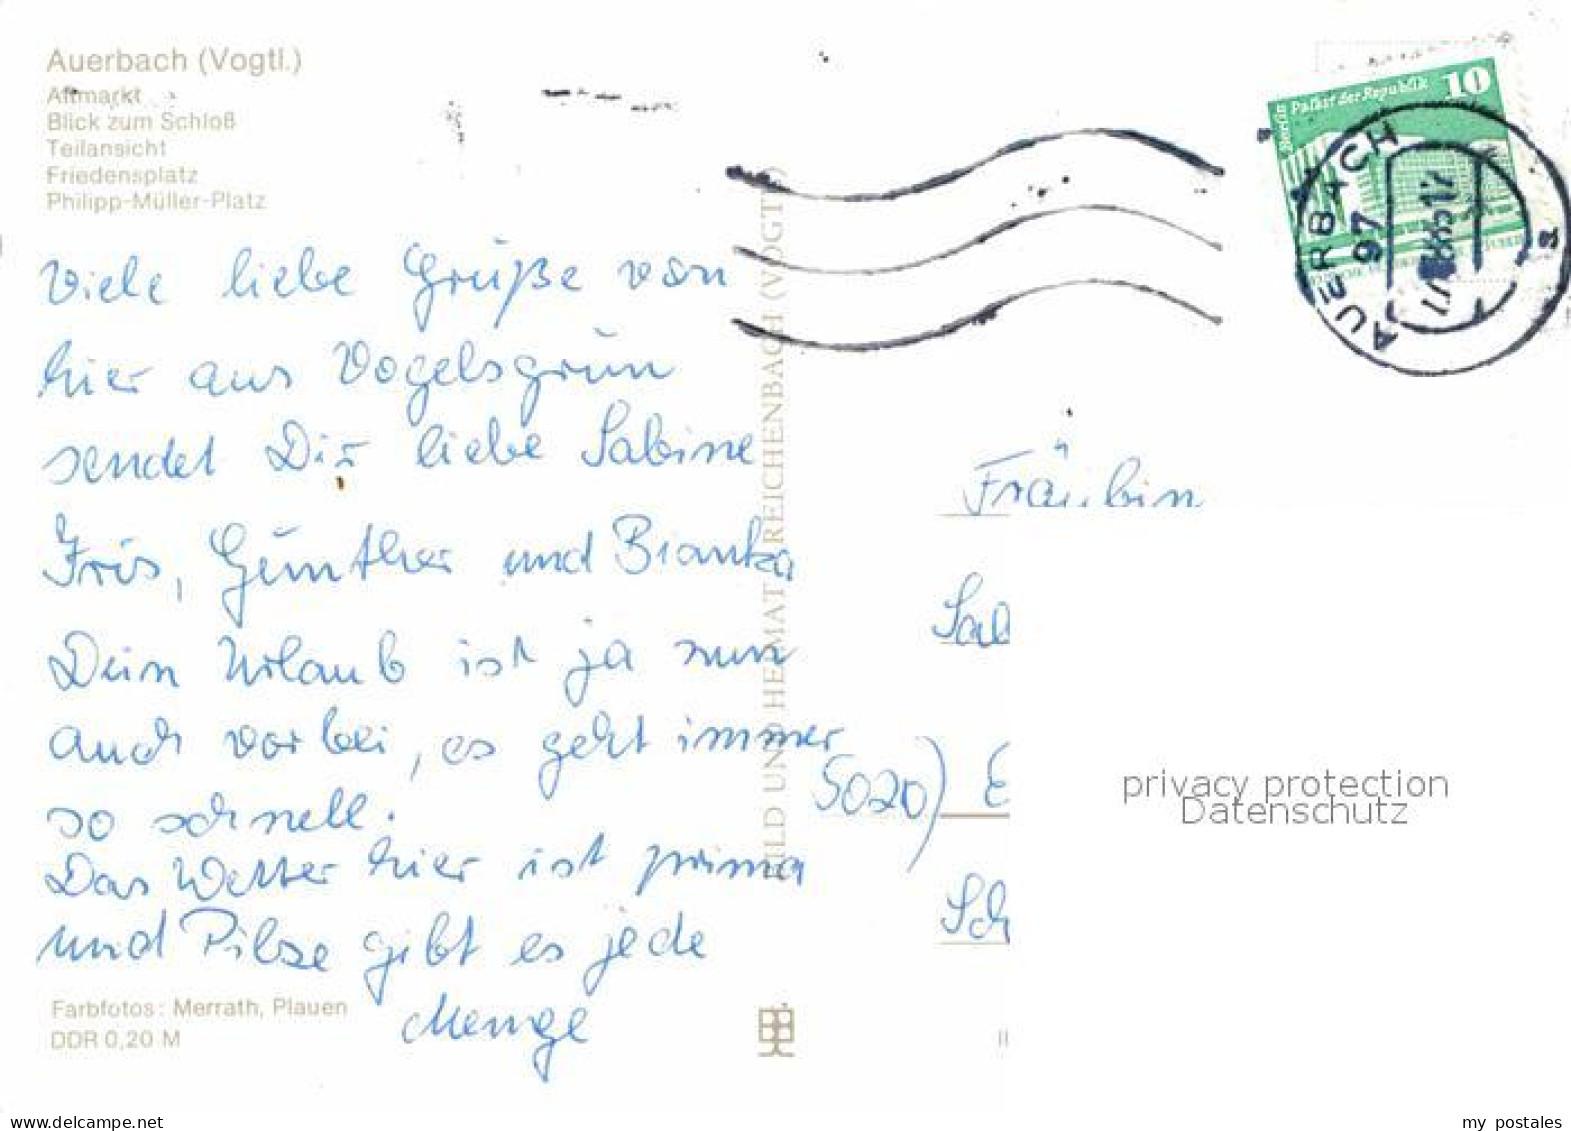 Auerbach (Vogtl.)
Altmarkt
Blick zum Schloß
Teilansicht
Friedensplatz
Philipp-Müller-Platz
Viele liebe Grüße von
hier aus Vogelsgrün
sendet Dir liebe Sabine
Iris, Günther und Bianka
Dein Urlaub ist ja nun
auch vorbei, es geht immer
so schnell.
Das Wetter hier ist prima
und Pilze gibt es jede
Menge
Farbfotos: Merrath, Plauen
DDR 0,20 M
BILD UND HEIMAT REICHENBACH (VOGTL)
Berlin Palast der Republik 10
AUERBACH
97
a
Fräulein
Sab
5020) E
Sch
privacy protection
Datenschutz
www.delcampe.net
my_postales